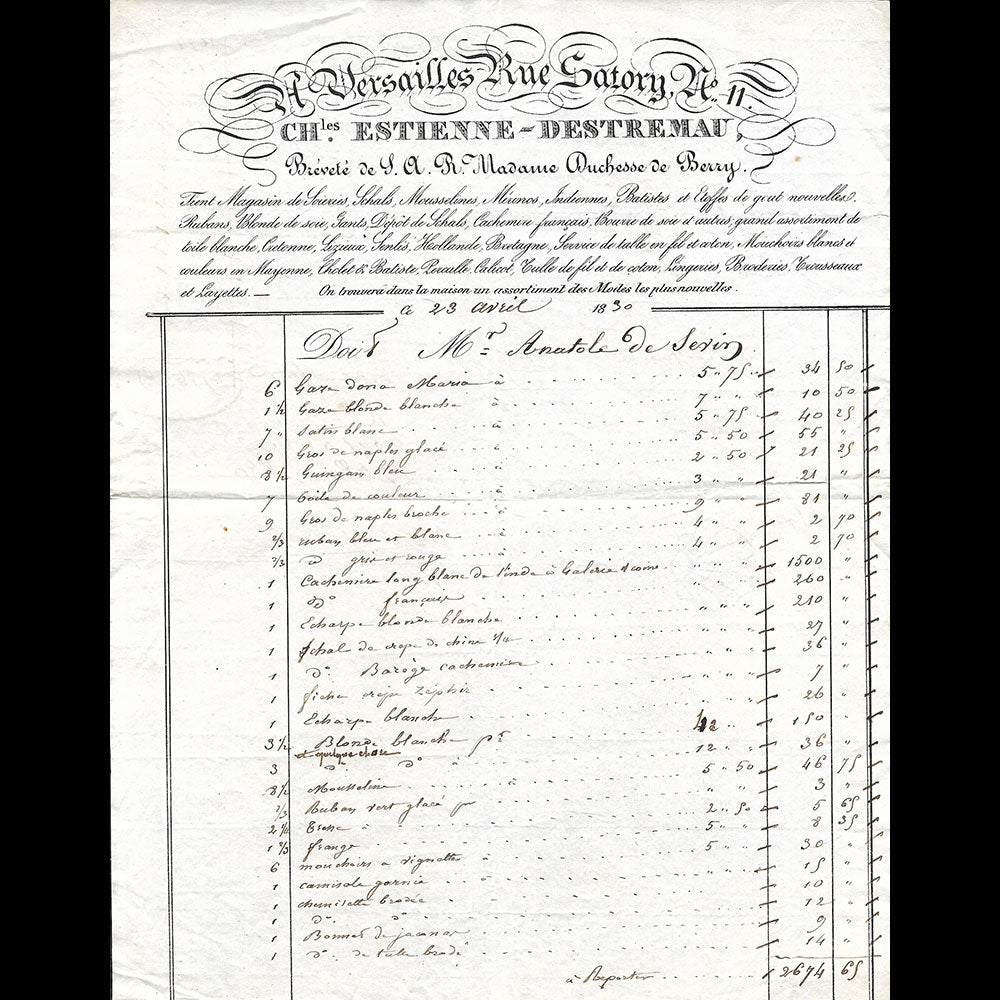 A Versailles Rue Satory, No. 11.
CHles. ESTIENNE-DESTREMAU,
Bréveté de S. A. R. Madame Duchesse de Berry.
Tient Magasin de Soieries, Schals, Mousselines, Mérinos, Indiennes, Batistes et Etoffes de gout nouvelles,
Rubans, Blonde de soie, Gants, Dépôt de Schals, Cachemire français, Bourre de soie et autres, grand assortiment de
toile blanche, Cretonne, Lizieux, Senlis, Hollande, Bretagne, Service de table en fil et coton, Mouchoirs blancs et
couleurs en Mayenne, Cholet & Batiste, Percalle, Calicot, Tulle de fil et de coton, Lingeries, Broderies, Trousseaux
et Layettes. — On trouvera dans la maison un assortiment des Modes les plus nouvelles.
Ce 23 avril 1830
Doit Mr. Anatole de Serin
6 Gaze dona Maria à 5 " 75 34 50
1 1/2 Gaze blonde blanche à 7 " " 10 50
7 " Satin blanc à 5 " 75 40 25
10 Gros de naples glacé à 5 " 50 55 "
8 1/2 Guingan bleu à 2 " 50 21 25
7 toile de couleur à 3 " " 21 "
9 Gros de naples broche à 9 " " 81 "
2/3 ruban bleu et blanc à 4 " " 2 70
2/3 do gris et rouge à 4 " " 2 70
1 Cachemire long blanc de l'inde à Galerie 1500 "
1 do français 260 "
1 Echarpe blonde blanche 210 "
1 Schal de crepe de chine 5/4 27 "
1 do. Barège cachemire 36 "
1 fichu crêpe zéphir 7 "
1 Echarpe blanche 26 "
3 1/2 Blonde blanche pr. 42 " 150 "
et quelque chose
3 do do à 12 " " 36 "
8 1/2 Mousseline à 5 " 50 46 75
1 2/3 Ruban vert glacé pr " " 3 "
2 1/4 à 2 " 50 5 65
1 2/3 frange 5 " " 8 35
6 mouchoirs a vignettes à 5 " " 30 "
1 camisole garnie 15 "
1 chemisette brodée 10 "
1 do. do 12 "
1 Bonnet de jaconas 9 "
1 do. de tulle brodé 14 "
à Reporter 2674 65